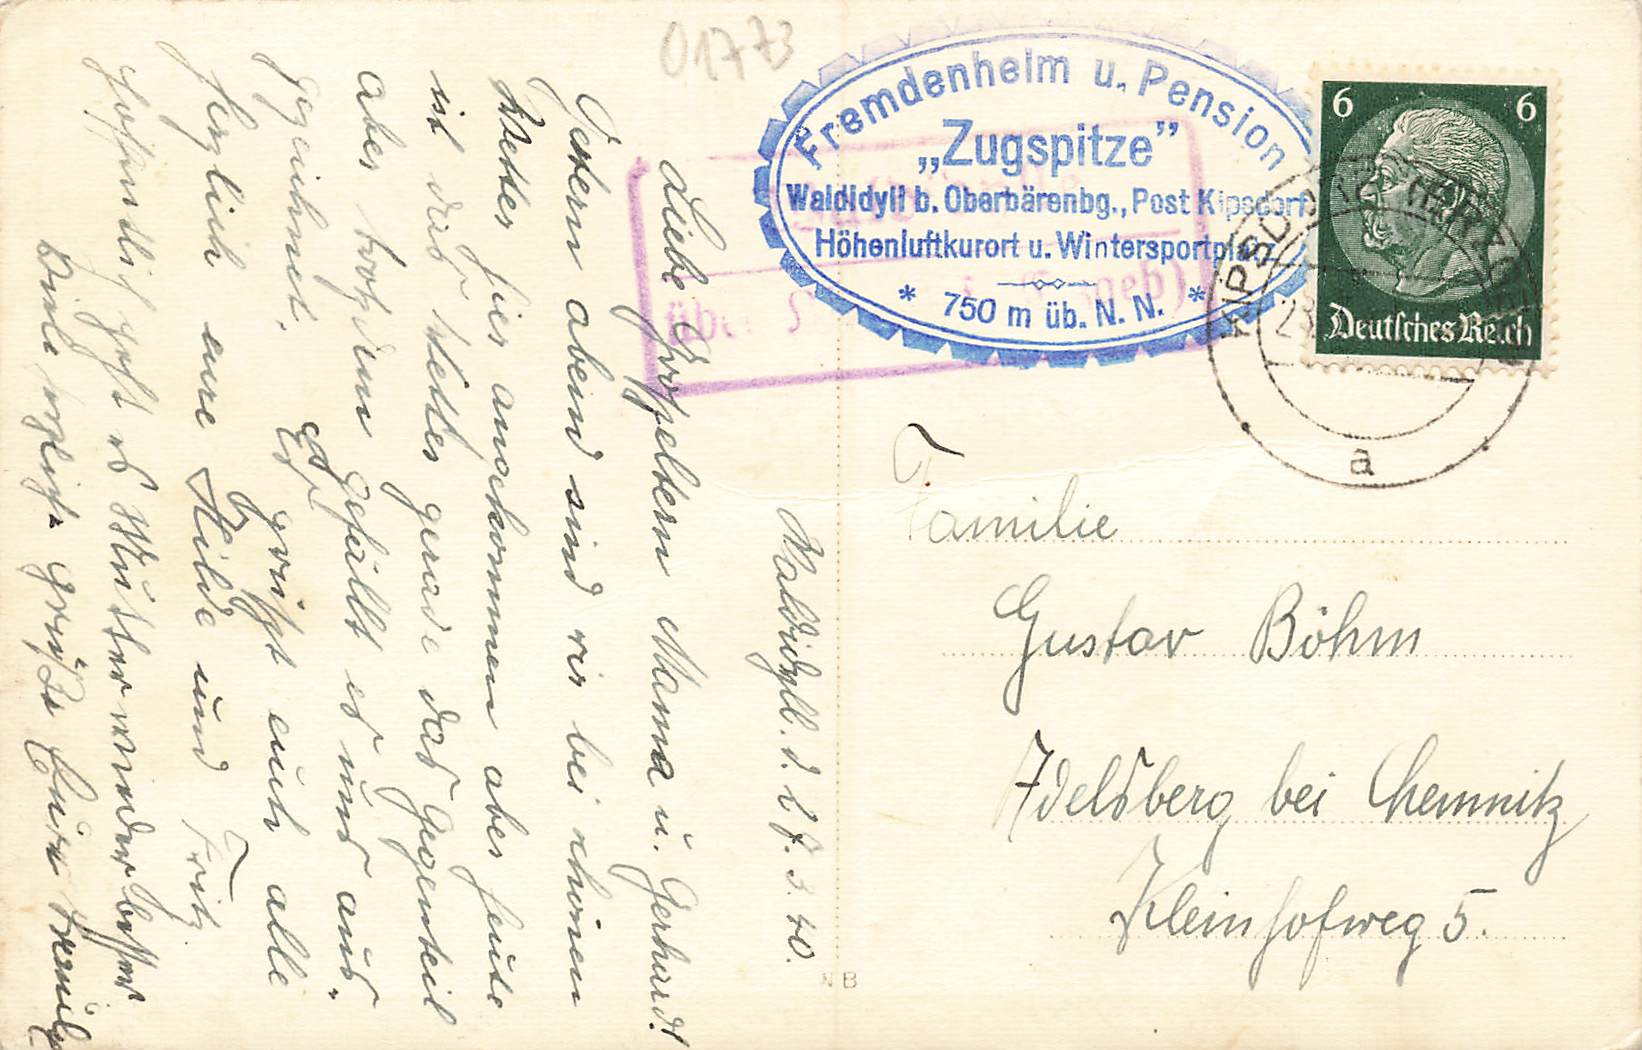 01773
Fremdenheim u. Pension
„Zugspitze”
Waldidyll b. Oberbärenbg., Post Kipsdorf
Höhenluftkurort u. Wintersportplatz
* 750 m üb. N. N. *
über
6 6
Deutsches Reich
KIPSDORF
a
Waldidyll. d. 27. 3. 40.
Liebe Großeltern Mama u. Gerhard!
Gestern abend sind wir bei schönen
Wetter hier angekommen aber heute
ist das Wetter gerade das Gegenteil
aber trotzdem gefällt es uns aus-
gezeichnet. Es grüßt euch alle
herzlich eure Hilde und Fritz
Hoffentlich geht es Mutter wieder besser
Viele Grüße
Familie
Gustav Böhm
Adelsberg bei Chemnitz
Kleinhofweg 5.
NB